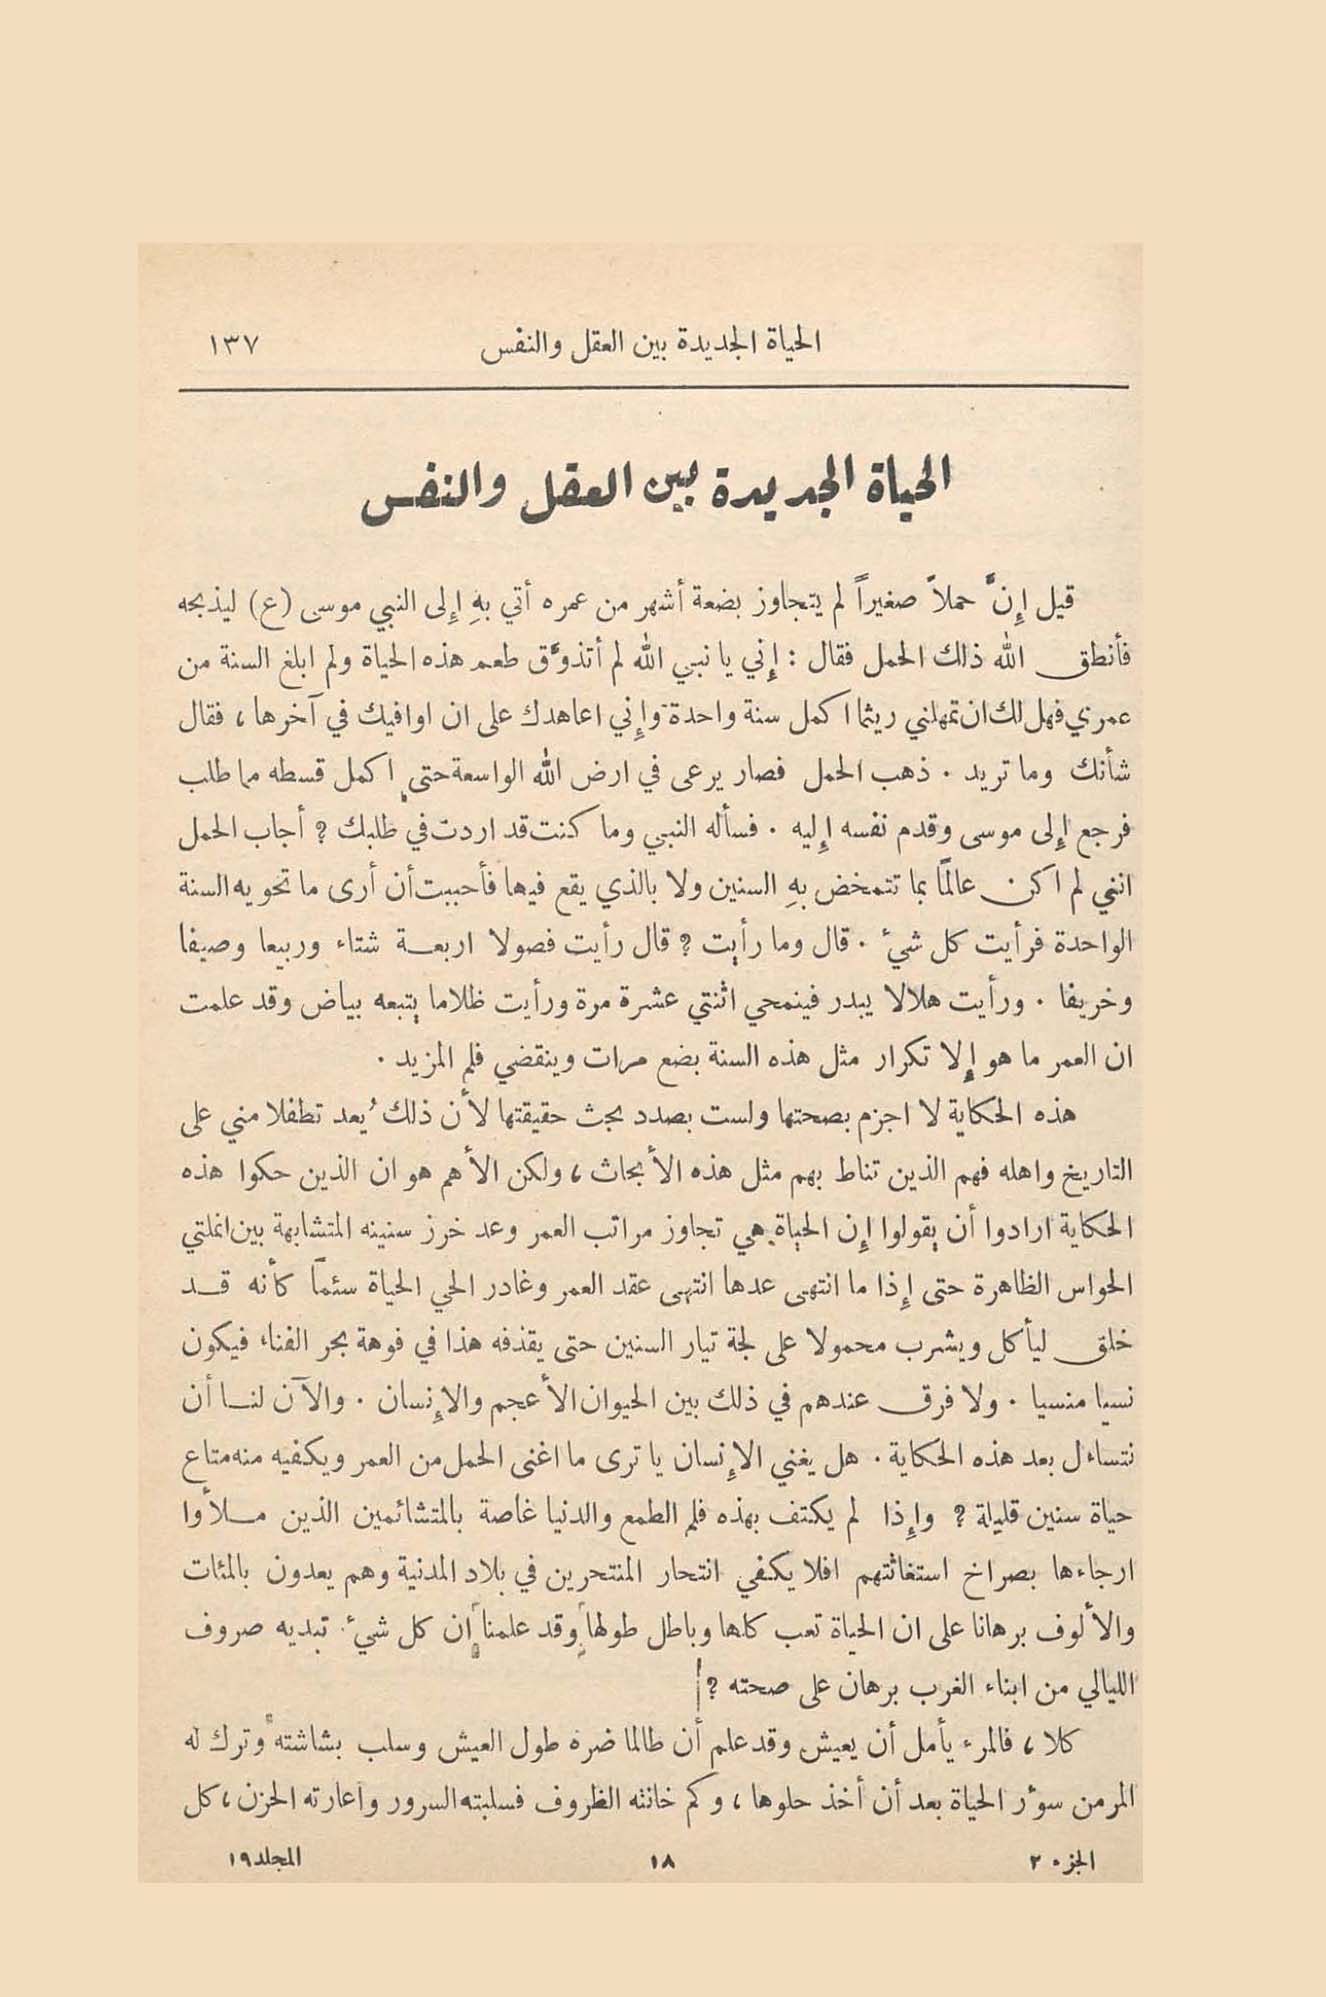 الحياة الجديدة بين العقل والنفس ١٣٧
الحياة الجديدة بين العقل والنفس
قيل إِنَّ حملاً صغيراً لم يتجاوز بضعة أشهر من عمره أتي بهِ إِلى النبي موسى (ع) ليذبحه
فأنطق الله ذلك الحمل فقال : إِني يا نبي الله لم أتذوَّق طعم هذه الحياة ولم ابلغ السنة من
عمري فهل لك ان تمهلني ريثما اكمل سنة واحدة وإِني اعاهدك على ان اوافيك في آخرها ، فقال
شأنك وما تريد . ذهب الحمل فصار يرعى في ارض الله الواسعة حتى اكمل قسطه مما طلب
فرجع إِلى موسى وقدم نفسه إِليه . فسأله النبي وما كنت قد اردت في طلبك ؟ أجاب الحمل
انني لم اكن عالمًا بما تتمخض بهِ السنين ولا بالذي يقع فيها فأحببت أن أرى ما تحويه السنة
الواحدة فرأيت كل شيء . قال وما رأيت ؟ قال رأيت فصولا اربعة شتاء وربيعا وصيفا
وخريفا . ورأيت هلالا يبدر فينمحي اثنتي عشرة مرة ورأيت ظلاما يتبعه بياض وقد علمت
ان العمر ما هو إِلا تكرار مثل هذه السنة بضع مرات وينقضي فلم المزيد .
هذه الحكاية لا اجزم بصحتها ولست بصدد بحث حقيقتها لأن ذلك يُعد تطفلا مني على
التاريخ واهله فهم الذين تناط بهم مثل هذه الأبحاث ، ولكن الأهم هو ان الذين حكوا هذه
الحكاية ارادوا أن يقولوا إِن الحياة هي تجاوز مراتب العمر وعد خرز سنينه المتشابهة بين انملتي
الحواس الظاهرة حتى إِذا ما انتهى عدها انتهى عقد العمر وغادر الحي الحياة سئماً كأنه قد
خلق ليأكل ويشرب محمولا على لجة تيار السنين حتى يقذفه هذا في فوهة بحر الفناء فيكون
نسيا منسيا . ولا فرق عندهم في ذلك بين الحيوان الأعجم والإِنسان . والآن لنا أن
نتساءل بعد هذه الحكاية . هل يغني الإِنسان يا ترى ما اغنى الحمل من العمر ويكفيه منه متاع
حياة سنين قليلة ؟ وإِذا لم يكتف بهذه فلم الطمع والدنيا غاصة بالمتشائمين الذين ملأوا
ارجاءها بصراخ استغاثتهم افلا يكفي انتحار المنتحرين في بلاد المدنية وهم يعدون بالمئات
والألوف برهانا على ان الحياة تعب كلها وباطل طولها وقد علمنا إن كل شيء تبديه صروف
الليالي من ابناء الغرب برهان على صحته ؟!
كلا ، فالمرء يأمل أن يعيش وقد علم أن طالما ضره طول العيش وسلب بشاشته وترك له
المر من سؤر الحياة بعد أن أخذ حلوها ، وكم خانته الظروف فسلبته السرور واعارته الحزن ، كل
الجزء ٢ ١٨ المجلد ١٩